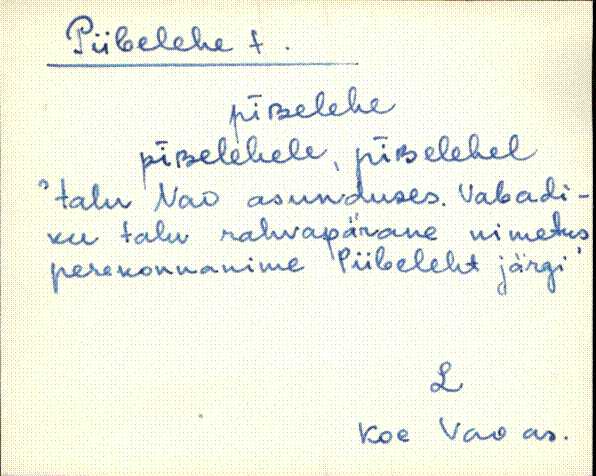 Piibelehe t.
pīʙelehe
pīʙelehele, pīʙelehel
"talu Vao asunduses. Vabadi-
ku talu rahvapärane nimetus
perekonnanime Piibeleht järgi"
L
Koe Vao as.